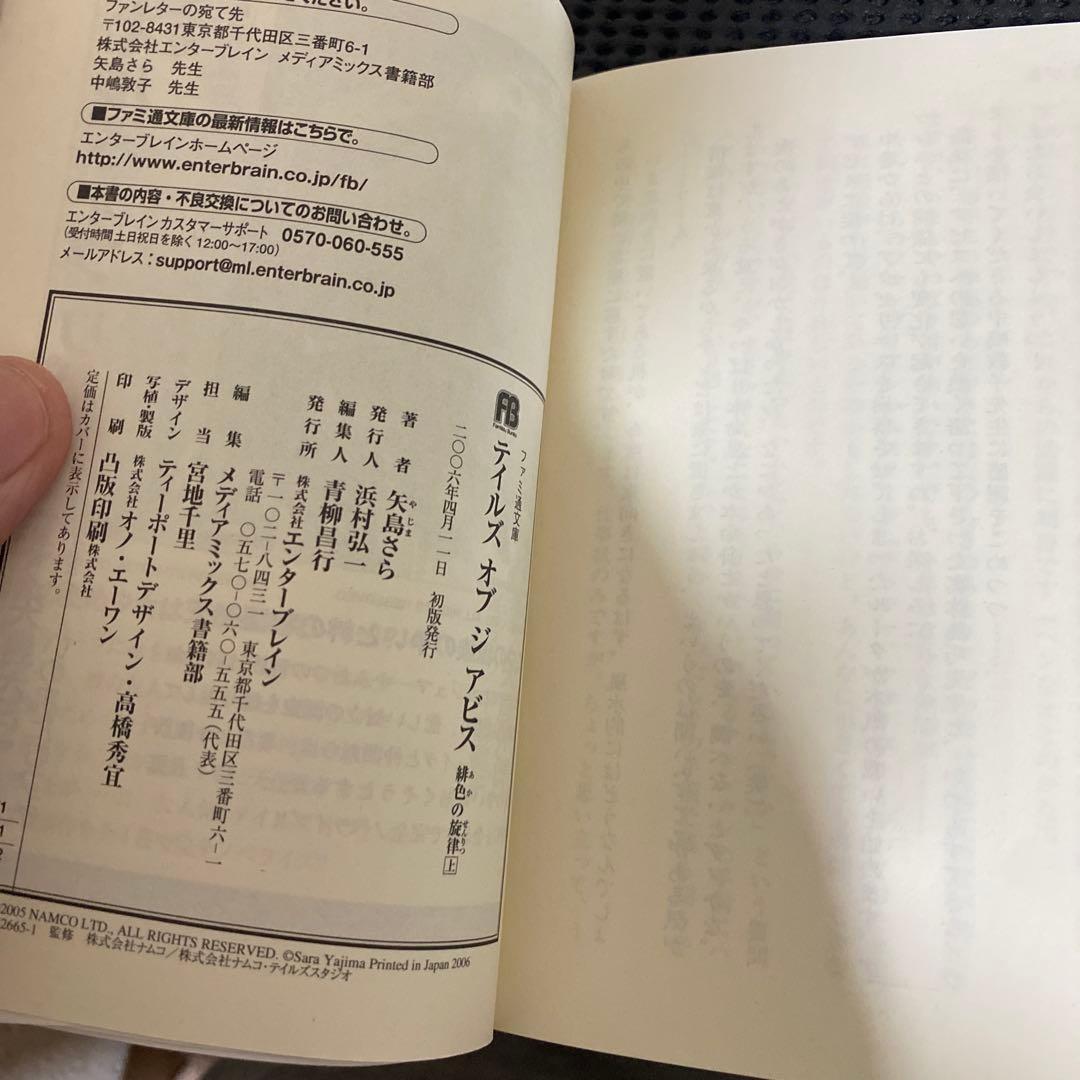 ください。
ファンレターの宛て先
〒102-8431東京都千代田区三番町6-1
株式会社エンターブレイン メディアミックス書籍部
矢島さら 先生
中嶋敦子 先生
■ファミ通文庫の最新情報はこちらで。
エンターブレインホームページ
http://www.enterbrain.co.jp/fb/
■本書の内容・不良交換についてのお問い合わせ。
エンターブレイン カスタマーサポート 0570-060-555
(受付時間 土日祝日を除く 12:00〜17:00)
メールアドレス:support@ml.enterbrain.co.jp
FB
ファミ通文庫
テイルズ オブ ジ アビス 緋色の旋律 上
あか
せんりつ
二〇〇六年四月一一日 初版発行
著者 矢島さら
やじま
発行人 浜村弘一
編集人 青柳昌行
発行所 株式会社エンターブレイン
〒一〇二-八四三一 東京都千代田区三番町六-一
電話 〇五七〇-〇六〇-五五五(代表)
編集 メディアミックス書籍部
担当 宮地千里
デザイン ティーポートデザイン・高橋秀宜
写植・製版 株式会社オノ・エーワン
印刷 凸版印刷株式会社
定価はカバーに表示してあります。
1
1
2
©2005 NAMCO LTD., ALL RIGHTS RESERVED. ©Sara Yajima Printed in Japan 2006
2665-1 監修 株式会社ナムコ/株式会社ナムコ・テイルズスタジオ